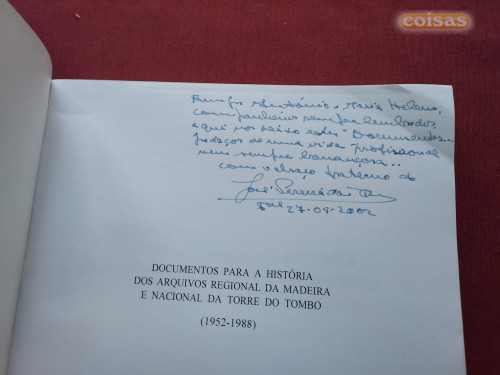 coisas
António e Maria Helena,
companheiros sempre lembrados,
aqui vos deixo estes "Documentos...
pedaços de uma vida profissional
nem sempre bonançosa...
com o abraço fraterno do
José Pereira da
27-09-2002
DOCUMENTOS PARA A HISTÓRIA
DOS ARQUIVOS REGIONAL DA MADEIRA
E NACIONAL DA TORRE DO TOMBO
(1952-1988)